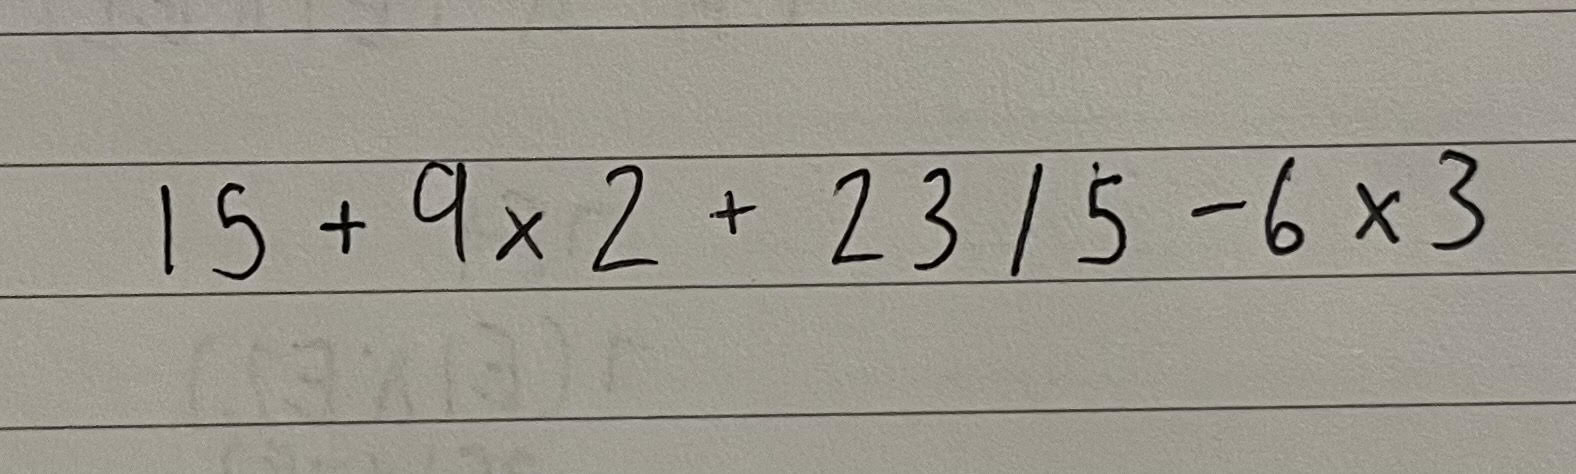 15 + 9 x 2 + 23 / 5 - 6 x 3